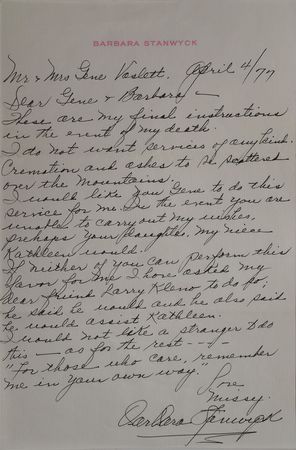 BARBARA STANWYCK
Mr. & Mrs Gene Vaslett. April 4/77
Dear Gene & Barbara -
These are my final instructions
in the event of my death.
I do not want services of any kind.
Cremation and ashes to be scattered
over the Mountains.
I would like you Gene to do this
service for me. In the event you are
unable to carry out my wishes,
perhaps your daughter, my niece
Kathleen would.
If neither of you can perform this
favor for me I have asked my
dear friend Larry Kleno to do so,
he said he would and he also said
he would assist Kathleen.
I would not like a stranger to do
this — as for the rest ----
"For those who care, remember
me in your own way."
Love
Missy.
Barbara Stanwyck